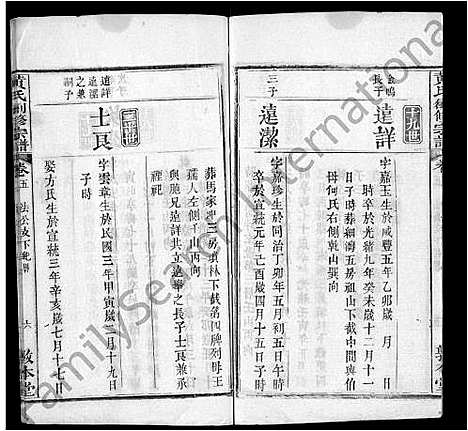 黄氏創修宗譜
十九世
金鳴
長子
遠詳
字嘉玉生於咸豐五年乙卯歲 月 日
時卒於光緒九年癸未歲十二月十一
日子時葬細濤五房祖山下截中間與伯
母何氏右側乾山巽向
三子
遠潔
字嘉珍生於同治丁卯年五月初五日午時
卒於宣統元年己酉歲四月十五日子時
葬馬家冲三房填林下截第四牌列母王
孺人左側干山丙向
與胞兄遠詳共立遠華之長子士良兼承
禋祀
二十世
遠詳
遠潔
之兼
祧子
士良
字雲章生於民國三年甲寅歲二月十九日
子時
娶方氏生於宣統三年辛亥歲七月十七日
黄氏創修宗譜
卷五
六
敦本堂
FamilySearch International